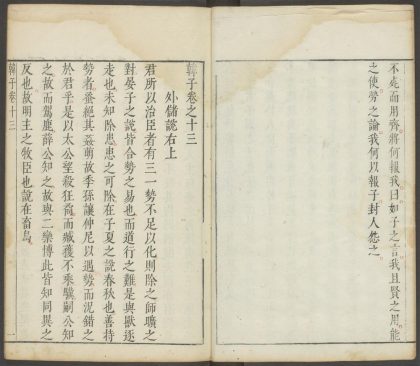 不處而用齊將何報我曰如子之言我且賢之用能
之使勞之論我何以報子封人怨之
韓子卷之十三
外儲說右上
君所以治臣者有三一勢不足以化則除之師曠之
對晏子之說皆合勢之易也而道行之難是與獸逐
走也未知除患患之可除在子夏之說春秋也善持
勢者蚤絕其姦萌故季孫讓仲尼以遇勢而況錯之
於君乎是以太公望殺狂矞而臧獲不乘驥嗣公知
之故而駕鹿薛公知之故與二欒博此皆知同異之
反也故明主之牧臣也說在畜烏
韓子卷十三
一